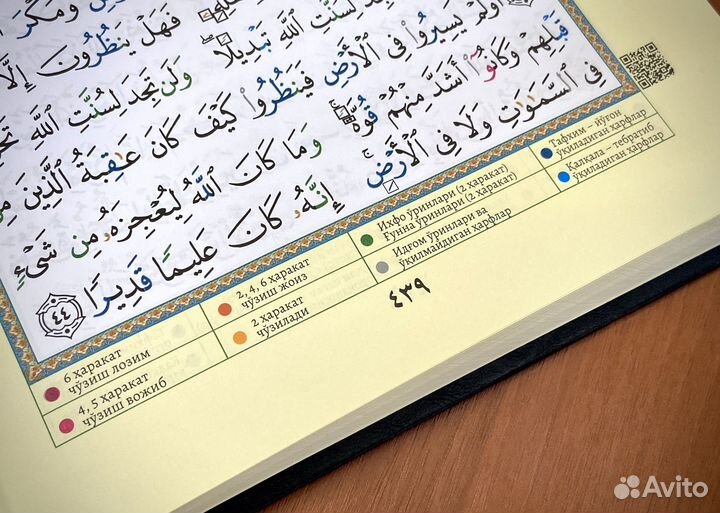 فَهَلْ يَنظُرُونَ إِلَّا
لِسُنَّتِ اللَّهِ تَبْدِيلًا ۖ وَلَن تَجِدَ لِسُنَّتِ اللَّهِ
أَوَلَمْ يَسِيرُوا۟ فِي الْأَرْضِ فَيَنظُرُوا۟ كَيْفَ كَانَ عَٰقِبَةُ الَّذِينَ مِن
قَبْلِهِمْ وَكَانُوٓا۟ أَشَدَّ مِنْهُمْ قُوَّةً ۚ وَمَا كَانَ اللَّهُ لِيُعْجِزَهُۥ مِن شَيْءٍ
فِي السَّمَٰوَٰتِ وَلَا فِي الْأَرْضِ ۚ إِنَّهُۥ كَانَ عَلِيمًا قَدِيرًا ٤٤
6 ҳаракат
чўзиш лозим
4, 5 ҳаракат
чўзиш вожиб
2, 4, 6 ҳаракат
чўзиш жоиз
2 ҳаракат
чўзилади
Ихфо ўринлари (2 ҳаракат)
Ғунна ўринлари (2 ҳаракат)
Идғом ўринлари ва
ўқилмайдиган ҳарфлар
Тафхим – йўғон
ўқиладиган ҳарфлар
Қалқала – тебратиб
ўқиладиган ҳарфлар
٤٣٩
Avito